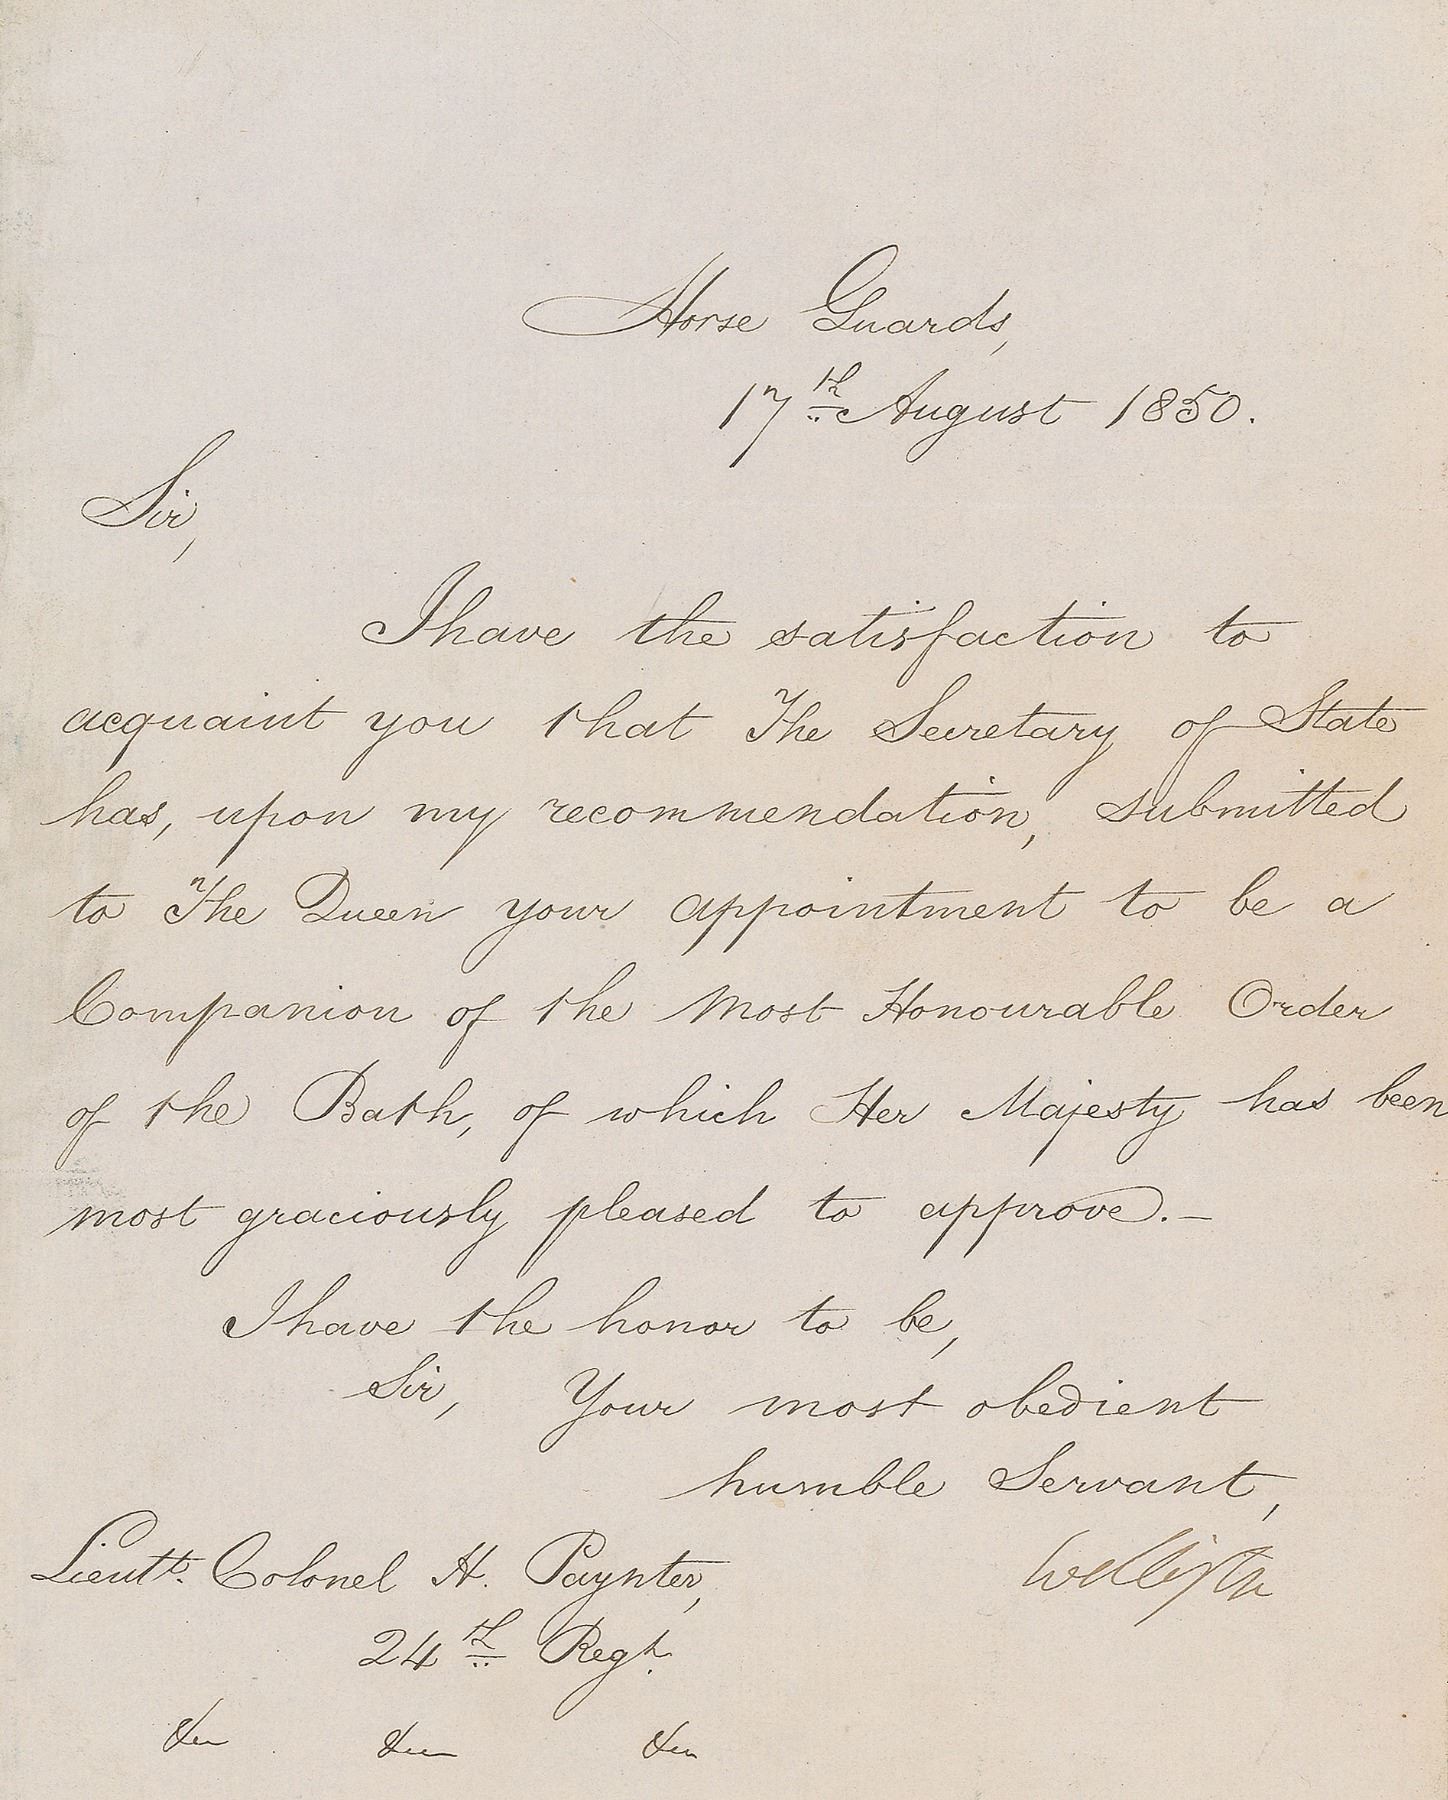 Horse Guards,
17th August 1850.
Sir,
I have the satisfaction to
acquaint you that The Secretary of State
has, upon my recommendation, submitted
to The Queen your appointment to be a
Companion of the Most Honourable Order
of the Bath, of which Her Majesty has been
most graciously pleased to approve.—
I have the honor to be,
Sir, Your most obedient
humble Servant,
Wellington
Lieutt. Colonel H. Paynter,
24th Regt.
&c &c &c